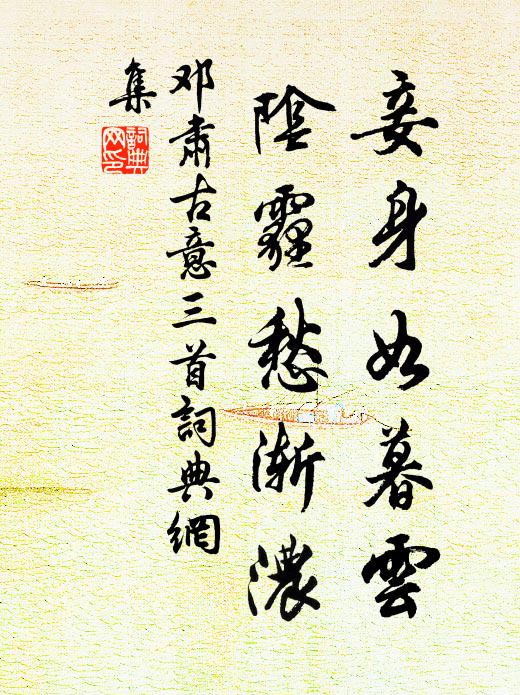 妾身如暮雲
陰霾愁漸濃
邓肅古意三首詞典網
集
詞典
网印